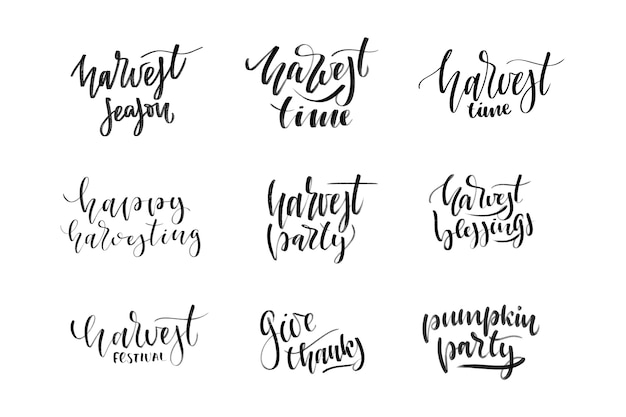 harvest
season
harvest
time
harvest
time
happy
harvesting
harvest
party
harvest
blessings
harvest
FESTIVAL
give
thanks
pumpkin
party